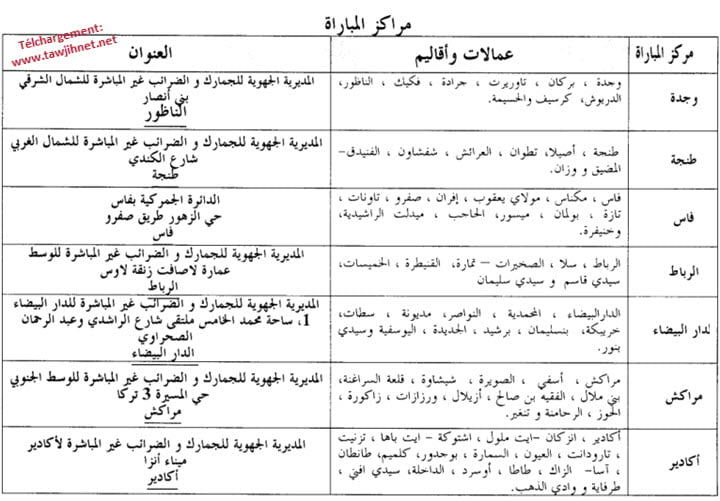 Télchargement:
www.tawjihnet.net
مراكز المباراة
مركز المباراة
عمالات وأقاليم
العنوان
وجدة
وجدة ، بركان ، تاوريرت ، جرادة ، فكيك ، الناظور،
الدريوش، كرسيف والحسيمة.
المديرية الجهوية للجمارك و الضرائب غير المباشرة للشمال الشرقي
بني أنصار
الناظور
طنجة
طنجة ، أصيلا، تطوان ، العرائش ، شفشاون ، الفنيدق-
المضيق و وزان.
المديرية الجهوية للجمارك و الضرائب غير المباشرة للشمال الغربي
شارع الكندي
طنجة
فاس
فاس ، مكناس ، مولاي يعقوب ، إفران ، صفرو ، تاونات ،
تازة ، بولمان ، ميسور، الحاجب ، ميدلت الراشيدية،
وخنيفرة.
الدائرة الجمركية بفاس
حي الزهور طريق صفرو
فاس
الرباط
الرباط ، سلا ، الصخيرات – تمارة، القنيطرة ، الخميسات،
سيدي قاسم و سيدي سليمان
المديرية الجهوية للجمارك و الضرائب غير المباشرة للوسط
عمارة لاصافت زنقة لاوس
الرباط
لدار البيضاء
الدارالبيضاء، المحمدية ، النواصر، مديونة ، سطات،
خريبكة، بنسليمان ، برشيد ، الجديدة ، اليوسفية وسيدي
بنور.
المديرية الجهوية للجمارك و الضرائب غير المباشرة للدار البيضاء
1، ساحة محمد الخامس ملتقى شارع الراشدي وعبد الرحمان
الصحراوي
الدار البيضاء
مراكش
مراكش ، أسفي ، الصويرة ، شيشاوة ، قلعة السراغنة،
بني ملال ، الفقيه بن صالح ، أزيلال ، ورزازات ، زاكورة ،
الحوز ، الرحامنة و تنغير.
المديرية الجهوية للجمارك و الضرائب غير المباشرة للوسط الجنوبي
حي المسيرة 3 تركا
مراكش
أكادير
أكادير ، انزكان –ايت ملول ، اشتوكة – ايت باها ، تزنيت
، تارودانت ، العيون ، السمارة ، بوجدور، كلميم، طانطان
، آسا- الزاك ، طاطا ، أوسرد ، الداخلة، سيدي افني ،
طرفاية و وادي الذهب.
المديرية الجهوية للجمارك و الضرائب غير المباشرة لأكادير
ميناء أنزا
أكادير